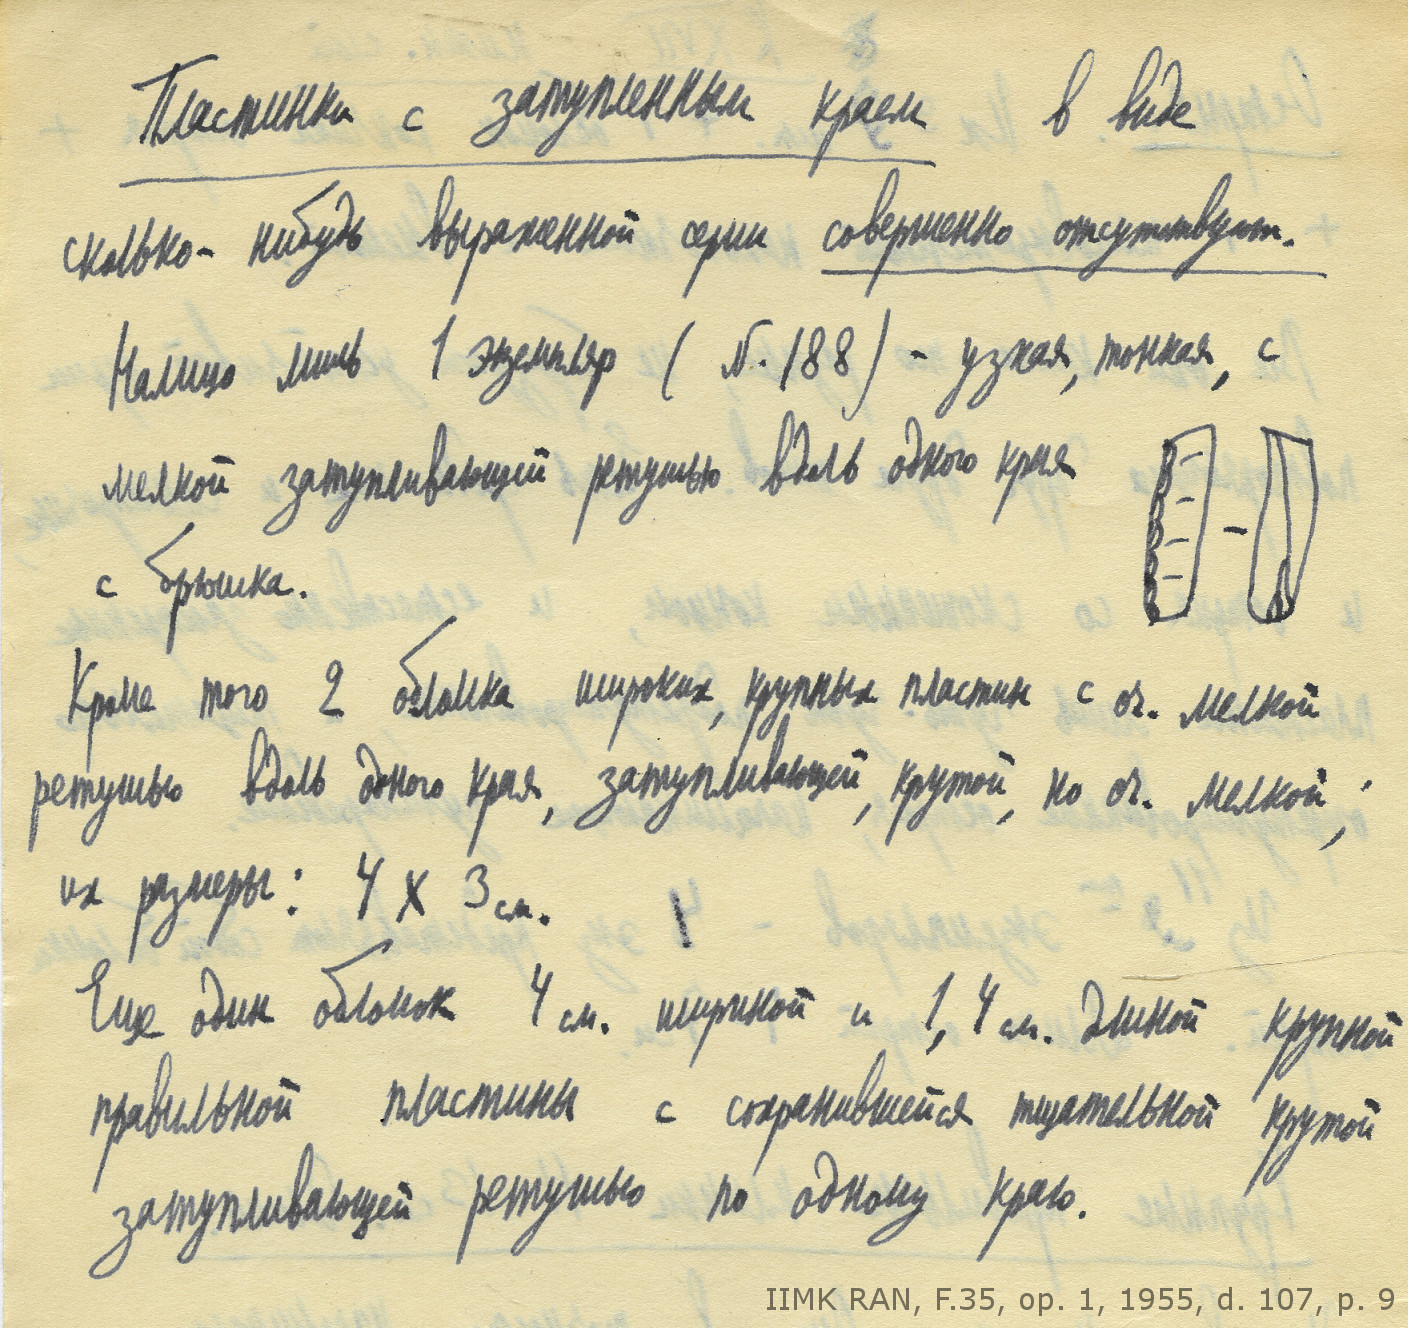 Пластинки с затупленным краем в виде
сколько-нибудь выраженной серии совершенно отсутствуют.
Налицо лишь 1 экземпляр (N. 188) - узкая, тонкая, с
мелкой затупливающей ретушью вдоль одного края
с брюшка.
Кроме того 2 обломка широких, крупных пластин с оч. мелкой
ретушью вдоль одного края, затупливающей, крутой, но оч. мелкой;
их размеры: 4 х 3 см.
Еще один обломок 4 см. шириной и 1,4 см. длиной крупной
правильной пластины с сохранившейся тщательной крутой
затупливающей ретушью по одному краю.
IIMK RAN, F.35, op. 1, 1955, d. 107, p. 9